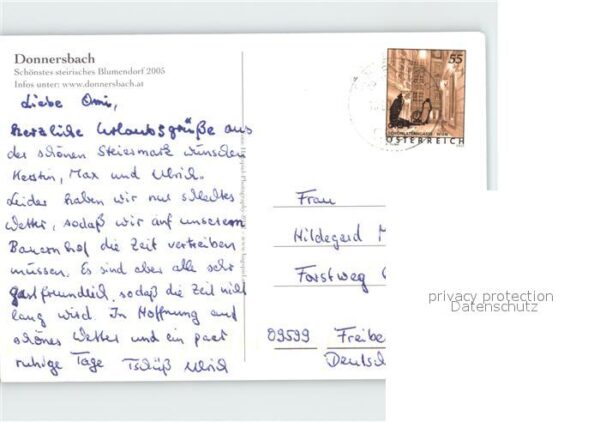 Donnersbach
Schönstes steirisches Blumendorf 2005
Infos unter: www.donnersbach.at
Liebe Omi,
herzliche Urlaubsgrüße aus
der schönen Steiermark wünschen
Kerstin, Max und Ulrich.
Leider haben wir nur schlechtes
Wetter, sodaß wir auf unserem
Bauernhof die Zeit vertreiben
müssen. Es sind aber alle sehr
gastfreundlich, sodaß die Zeit nicht
lang wird. In Hoffnung auf
schönes Wetter und ein paar
ruhige Tage Tschüß Ulrich
55
ÖSTERREICH
Frau
Hildegerd M
Forstweg
09599 Freibe
Deutsch
privacy protection
Datenschutz